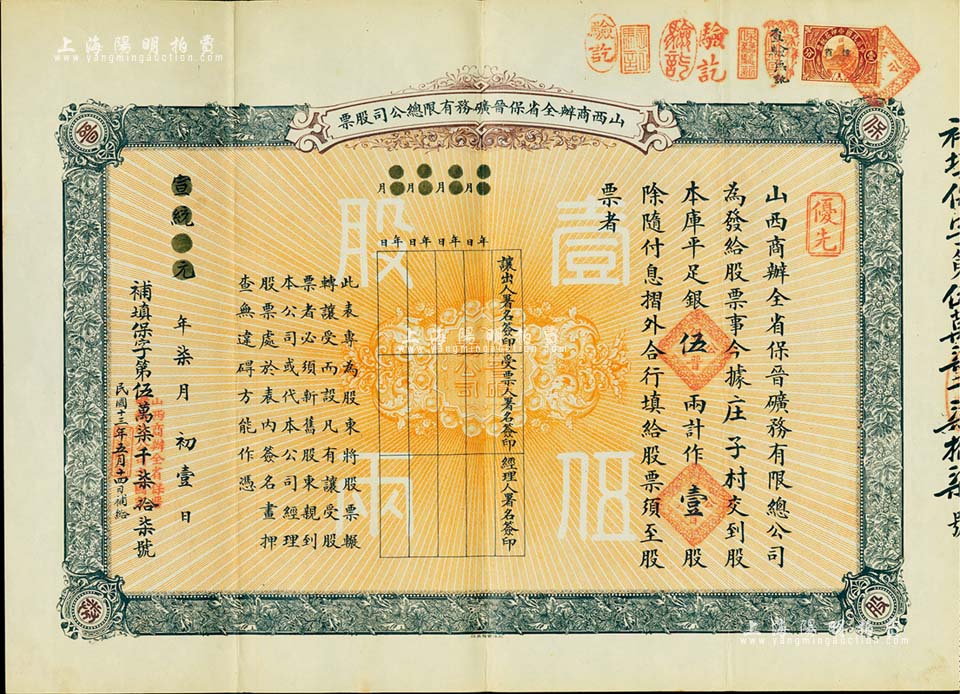 上海陽明拍賣
www.yangmingauction.com
驗訖
驗訖
驗訖
山西商辦全省保晉礦務有限總公司股票
保
晉
股
優先
山西商辦全省保晉礦務有限總公司
為發給股票事今據庄子村交到股
本庫平足銀伍兩計作壹股
除隨付息摺外合行填給股票須至股
票者
壹股
伍兩
讓出人署名簽印
受票人署名簽印
經理人署名簽印
年月日
年月日
年月日
年月日
此表專為股東將股票輾
轉讓受而設凡有讓受股
票者必須新舊股東親到
本公司或代本公司經理
股票處於表內簽名畫押
查無違碍方能作憑
宣統元年柒月初壹日
補填保字第伍萬柒千柒拾柒號
民國十三年五月十四日補給
上海陽明拍賣
www.yangmingauction.com
上海陽明拍賣
www.yangmingauction.com